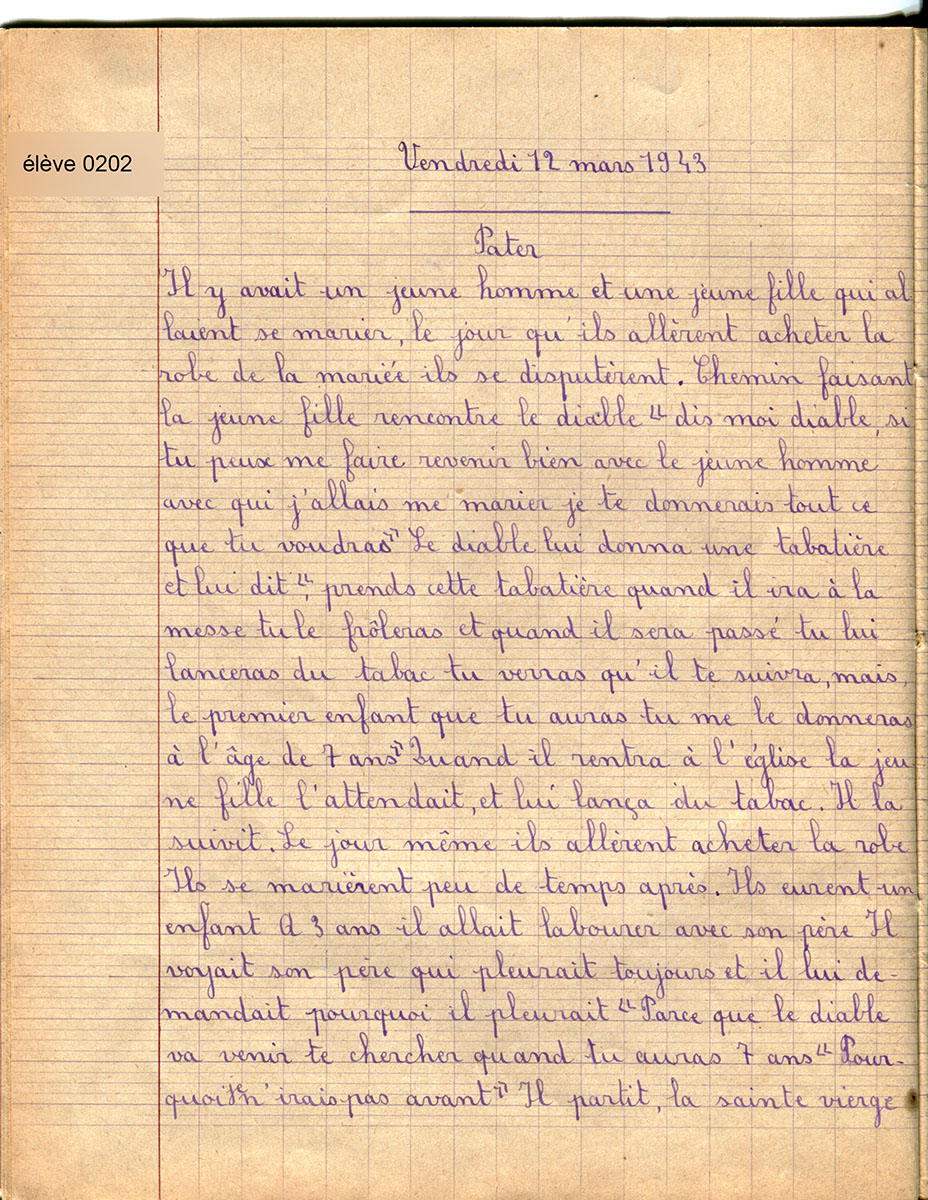 élève 0202
Vendredi 12 mars 1943
Pater
Il y avait un jeune homme et une jeune fille qui al
laient se marier, le jour qu'ils allèrent acheter la
robe de la mariée ils se disputèrent. Chemin faisant
la jeune fille rencontre le diable " dis moi diable, si
tu peux me faire revenir bien avec le jeune homme
avec qui j'allais me marier je te donnerais tout ce
que tu voudras" Le diable lui donna une tabatière
et lui dit ", prends cette tabatière quand il ira à la
messe tu le frôleras et quand il sera passé tu lui
lanceras du tabac tu verras qu'il te suivra, mais,
le premier enfant que tu auras tu me le donneras
à l'âge de 7 ans" Quand il rentra à l'église la jeu
ne fille l'attendait, et lui lança du tabac. Il la
suivit. Le jour même ils allèrent acheter la robe
Ils se marièrent peu de temps après. Ils eurent un
enfant A 3 ans il allait labourer avec son père Il
voyait son père qui pleurait toujours et il lui de-
mandait pourquoi il pleurait " Parce que le diable
va venir te chercher quand tu auras 7 ans " Pour-
quoi je n'irais pas avant" Il partit, la sainte vierge